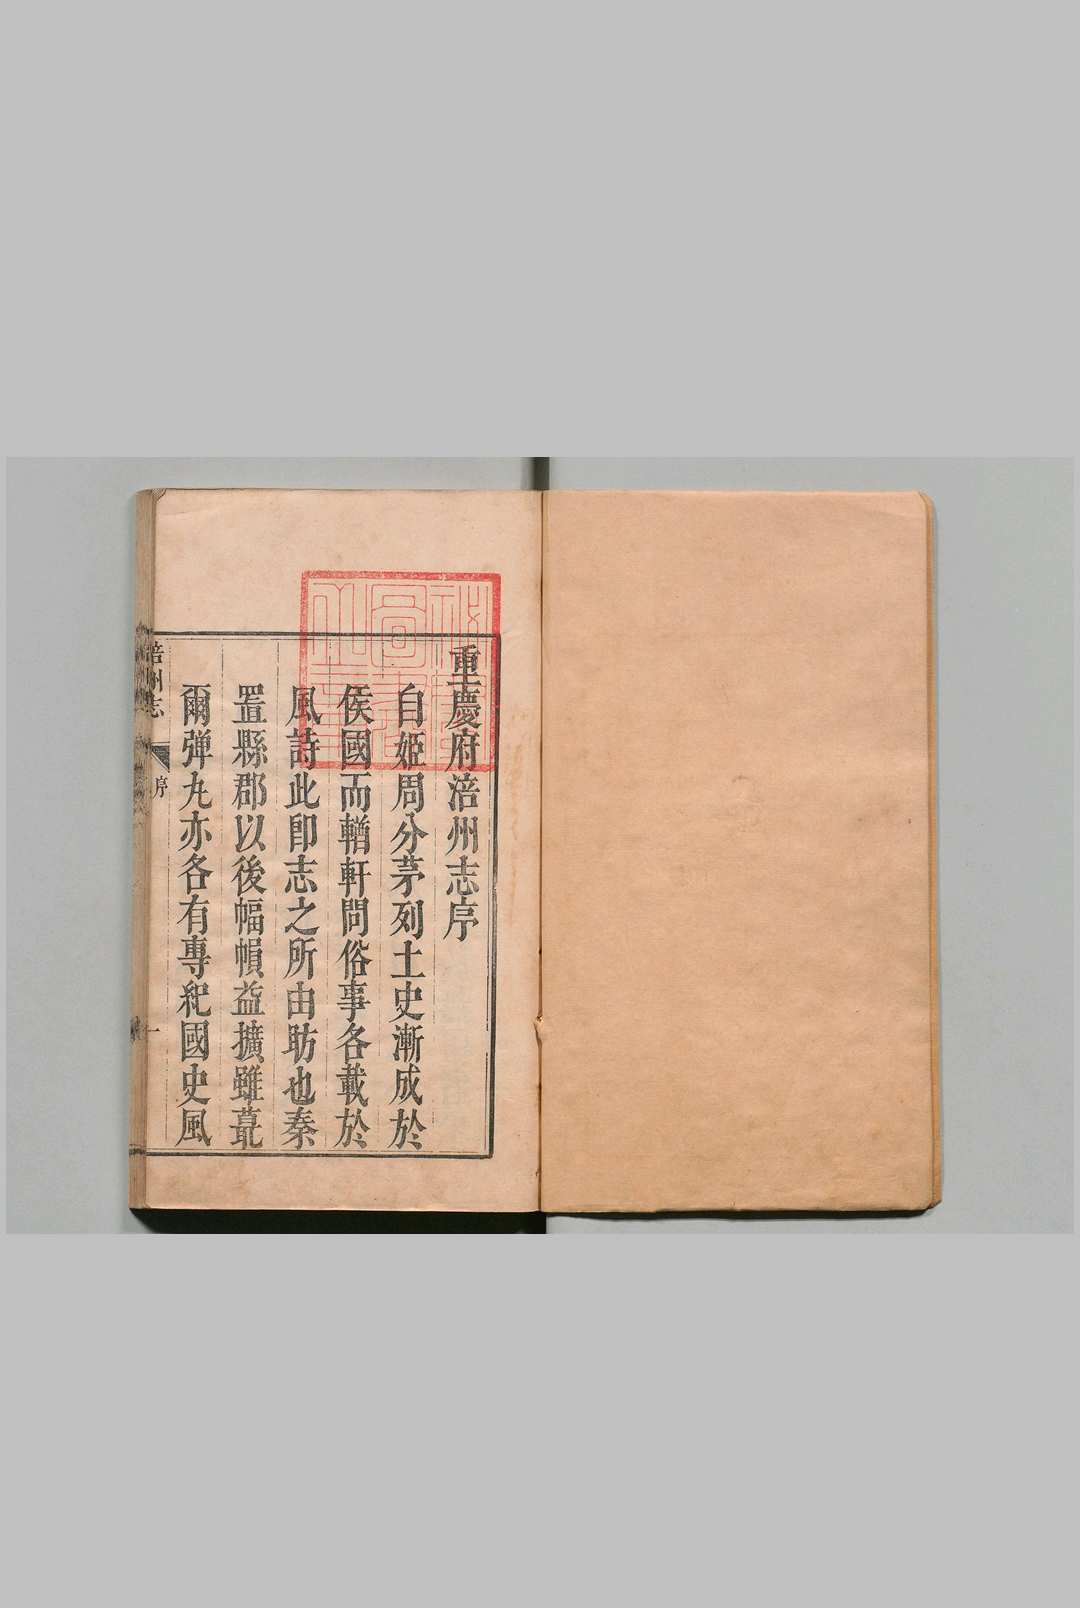 重慶府涪州志序
自姬周分茅列土史漸成於
侯國而輶軒問俗事各載於
風詩此卽志之所由昉也秦
置縣郡以後幅幀益擴雖蕞
爾弹丸亦各有專紀國史風
涪州志
序
一